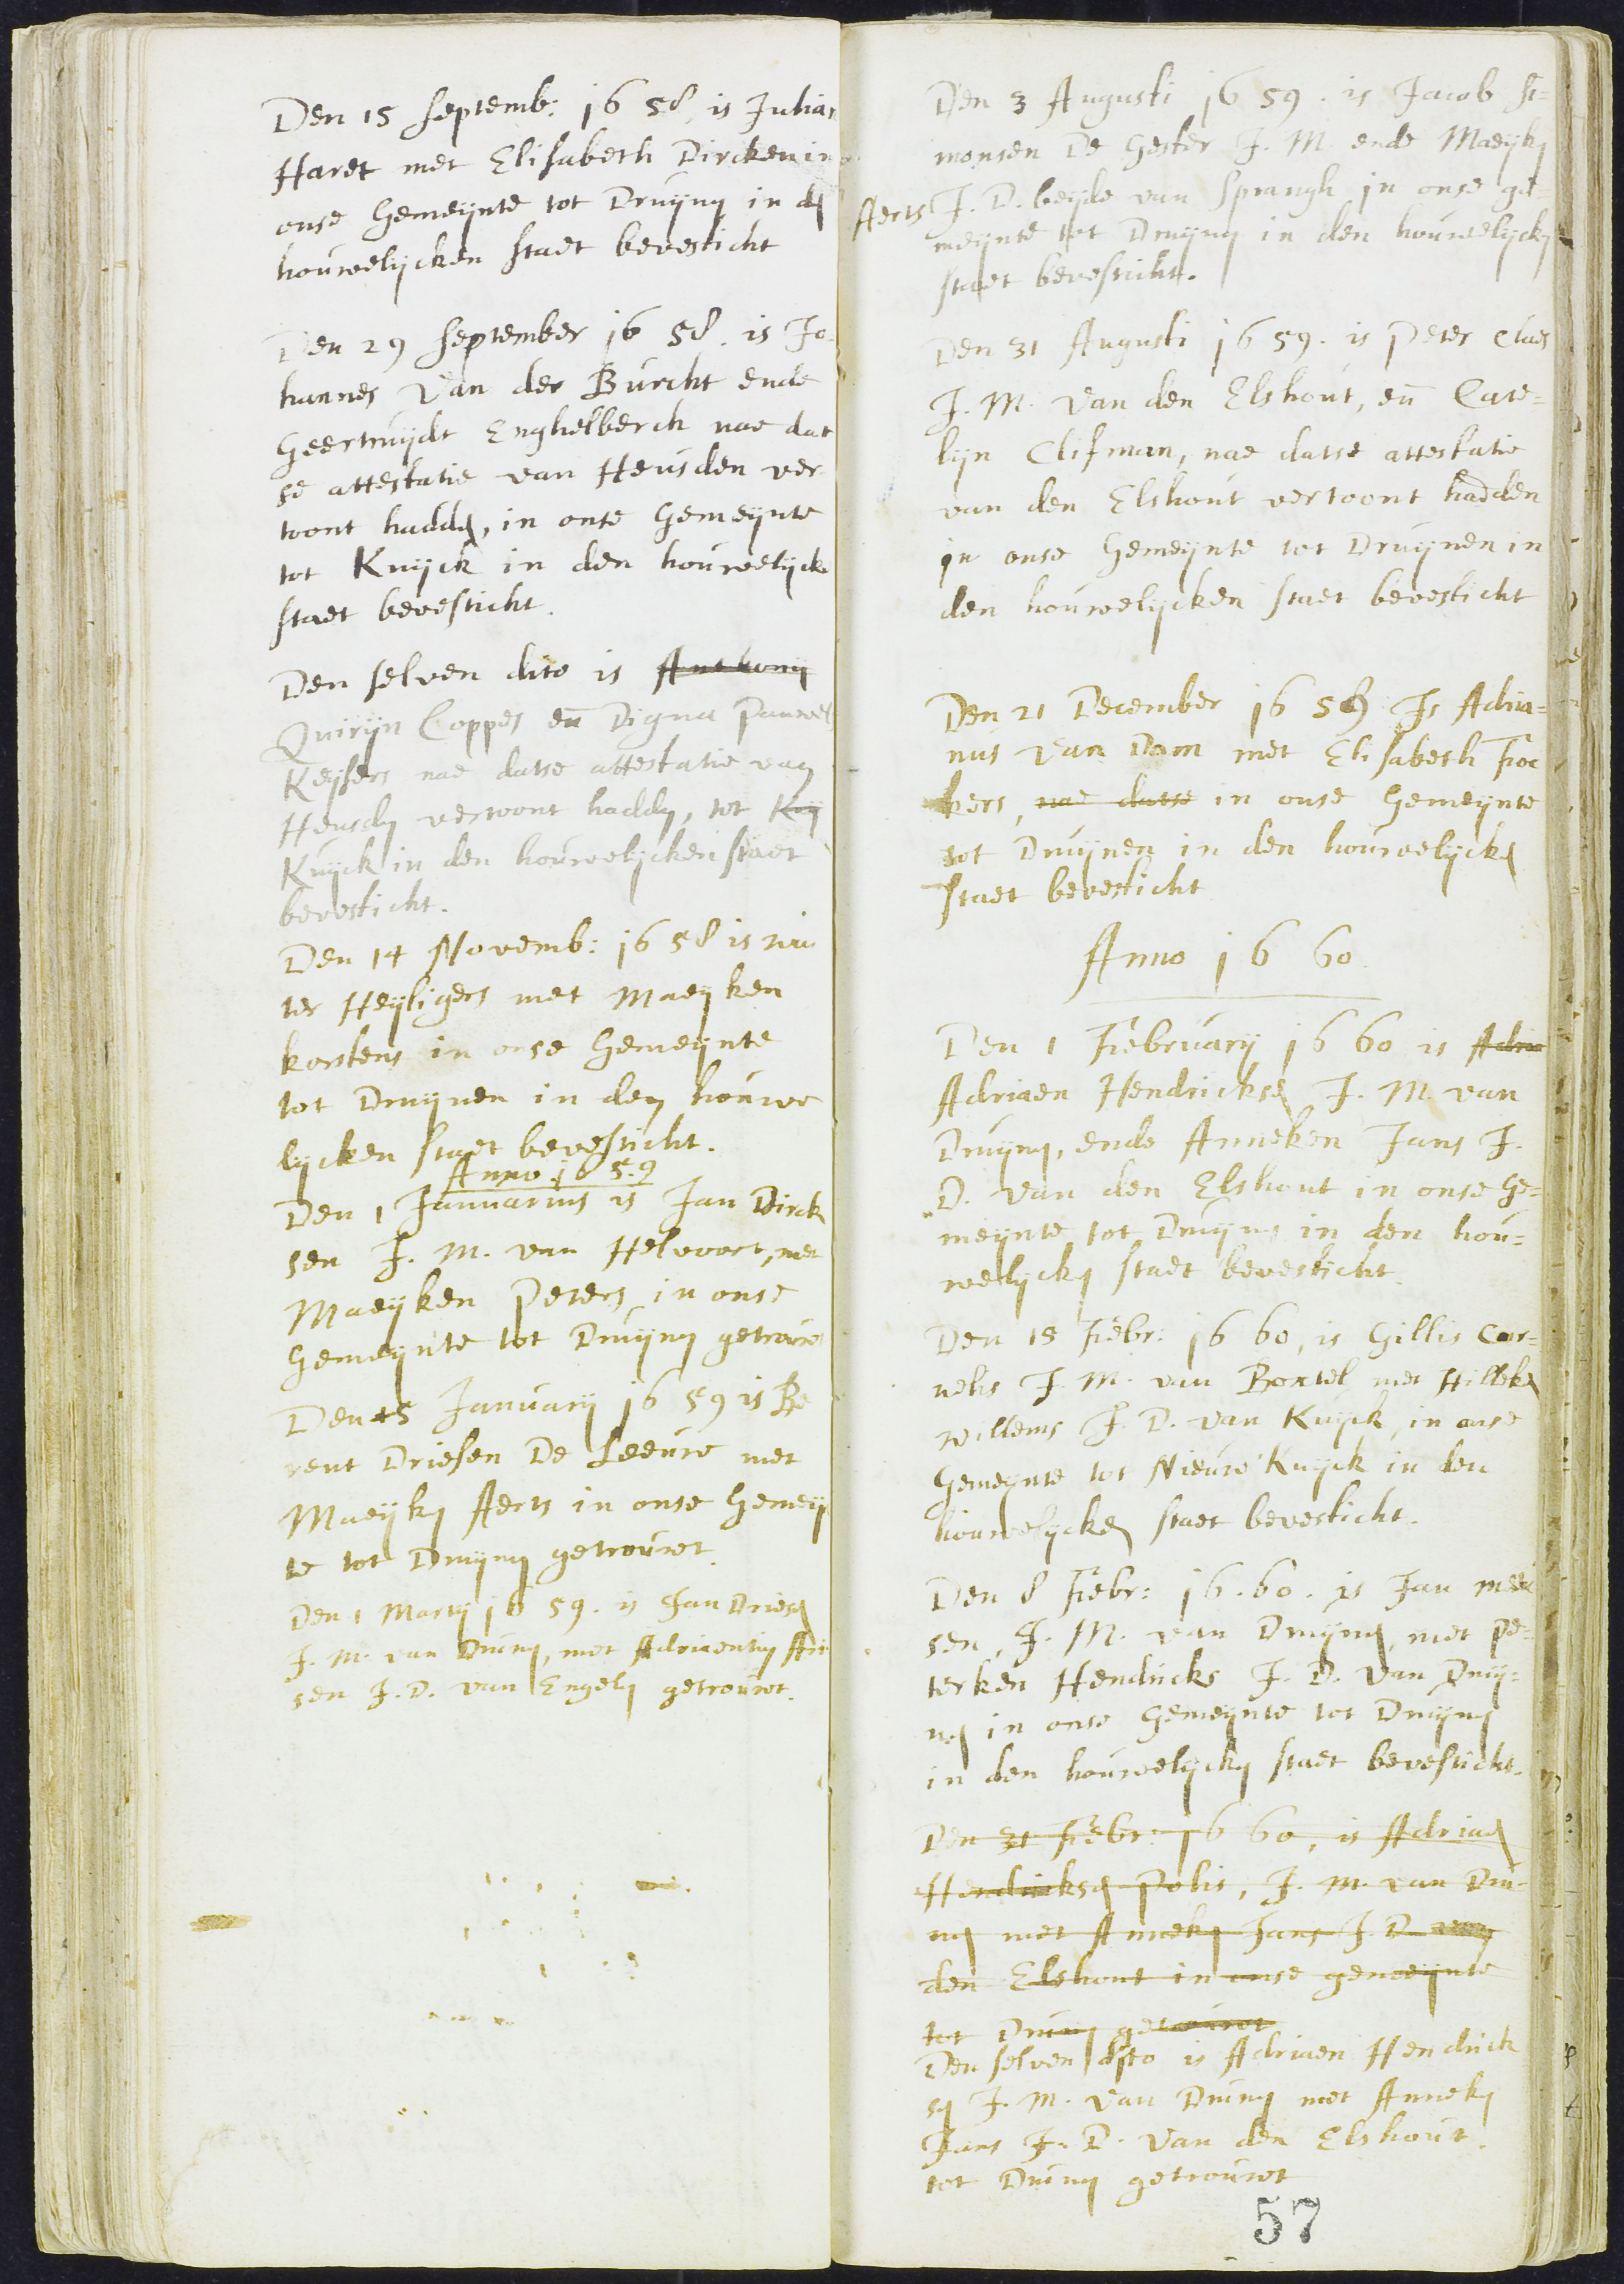 Den 15 septemb: 1658, is Julian
Haret met Elisabeth Dircken in
onse Gemeijnte tot Druijnen in den
houwelijcken staet bevesticht
Den 29 september 1658. is Jo-
hannes Van der Burcht ende
Geertruijdt Enghelberch nae dat
se attestatie van Heusden ver
toont hadden, in onse Gemeijnte
tot Kuijck in den houwelijcken
staet bevesticht.
Den selven dito is Anthonij
Quirijn Coppes en Digna Pauwels
Keijsers nae datse attestatie van
Heusden vertoont hadden, tot Kuij
Kuijck in den houwelijcken staet
bevesticht.
Den 14 Novemb: 1658 is
ter Heijligers met Maeijken
korstens in onse Gemeijnte
tot Druijnen in den houwe
lijcken staet bevesticht.
Anno 1659
Den 1 Januarius is Jan Dirck
sen J. M. van Helvoort, met
Maeijken Peters in onse
Gemeijnte tot Druijnen getrouwt
Den 15 Januarij 1659 is Be
rent Driesen De Leeuw met
Maeijken Aerts in onse Gemeijn
te tot Druijnen getrouwt.
Den 1 Martij 1659. is Jan Driesen
J. M. van Druinen, met Adriaentien Ari
sen J. D. van Engelen getrouwt.
Den 3 Augusti 1659. is Jacob Si-
monsen De Gester J. M. ende Maeijken
Aerts J. D. beijde van Sprangh in onse ge-
meijnte tot Druijnen in den houwelijcken
staet bevesticht.
Den 31 Augusti 1659. is Peter Claes
J. M. Van den Elshout, en Cate-
lijn Clisman, nae datse attestatie
van den Elshout vertoont hadden
in onse Gemeijnte tot Druijnen in
den houwelijcken staet bevesticht
Den 21 December 1659 Is Adria-
nus Van Dam met Elisabeth Foc
kers, nae datse in onse Gemeijnte
tot Druijnen in den houwelijcken
staet bevesticht
Anno 1660
Den 1 Februarij 1660 is Adria
Adriaen Hendricksen J. M. van
Druijnen, ende Anneken Jans J.
D. Van den Elshout in onse Ge-
meijnte tot Druijnen in den hou-
welijcken staet bevesticht.
Den 15 Febr: 1660, is Gillis Cor-
nelis J. M. van Boxtel met Hilleken
willems J. D. van Kuijck, in onse
Gemeijnte tot Nieuw Kuijck in den
houwelijcken staet bevesticht.
Den 8 Febr: 1660. is Jan
sen, J. M. van Druijnen, met Pe-
terken Hendricks J. D. Van Druij-
nen in onse Gemeijnte tot Druijnen
in den houwelijcken staet bevesticht.
Den 31 Febr: 1660, is Adriaen
Hendricksen Polis, J. M. van Dru-
nen met Anneken Jans J. D. van
den Elshout in onse gemeijnte
tot Druinen getrouwt
Den selven dito is Adriaen Hendrick
sen J. M. van Druinen met Anneken
Jans J. D. Van den Elshout.
tot Druinen getrouwt
57